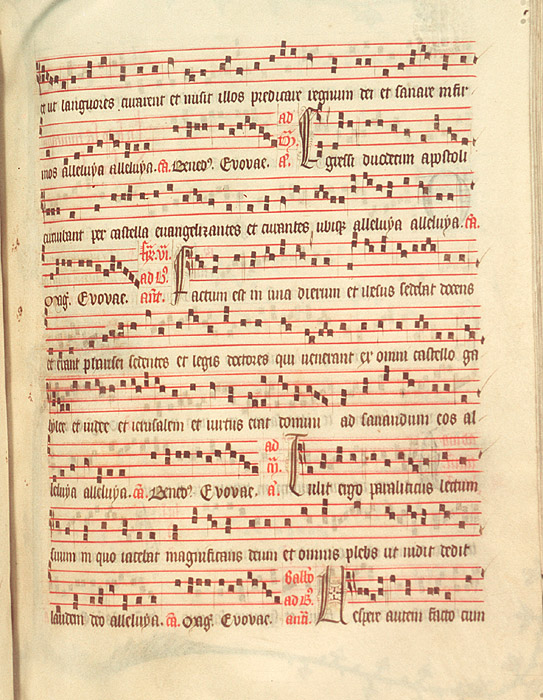 et ut languores curarent et misit illos predicare regnum dei et sanare infir
mos alleluya alleluya. ca. Bened. Evovae. ad M. a. Egressi duodecim apostoli
circuibant per castella evangelizantes et curantes ubiq alleluya alleluya. ca.
Mag. Evovae. fer. vi. ad B. ane. Factum est in una dierum et iesus sedebat docens
et erant pharisei sedentes et legis doctores qui venerant ex omni castello ga
lylee et iudee et ierusalem et virtus erat domini ad sanandum eos al
leluya alleluya. ca. Bened. Evovae. ad M. a. Tulit ergo paraliticus lectum
suum in quo iacebat magnificans deum et omnis plebs ut vidit dedit
laudem deo alleluya. ca. Mag. Evovae. Sabbo ad B. ant. Vespere autem facto cum